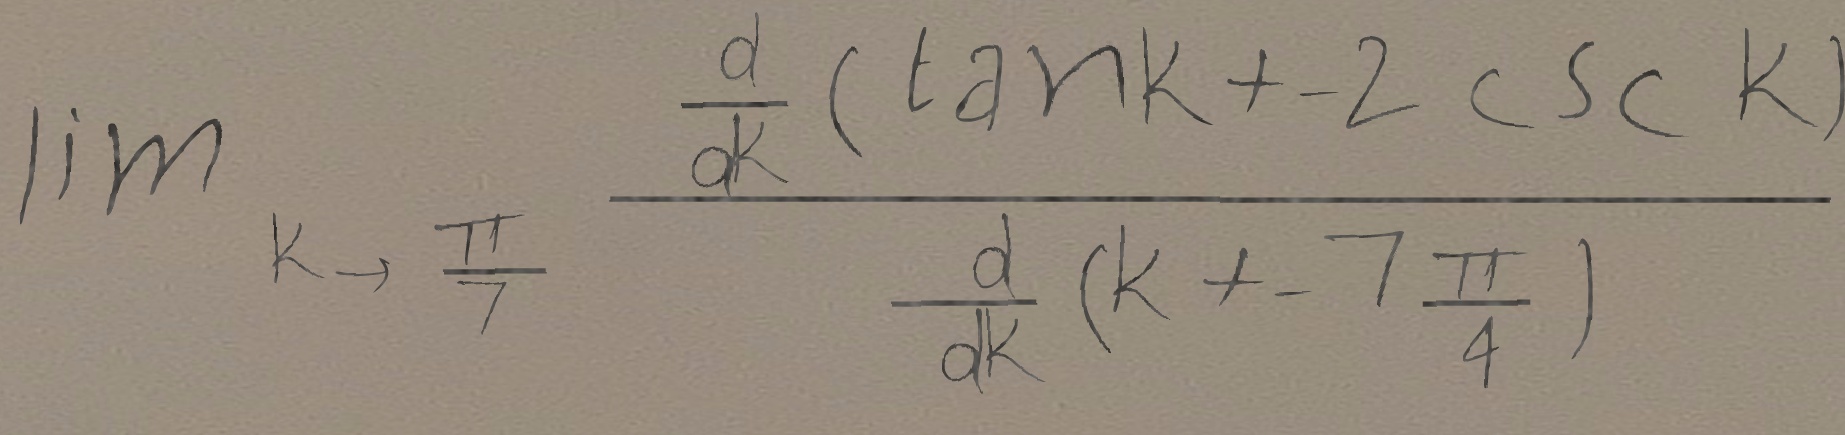 \lim_{k \to \frac{\pi}{7}} \frac{\frac{d}{dk}(\tan k + -2 \csc k)}{\frac{d}{dk}(k + -7\frac{\pi}{4})}